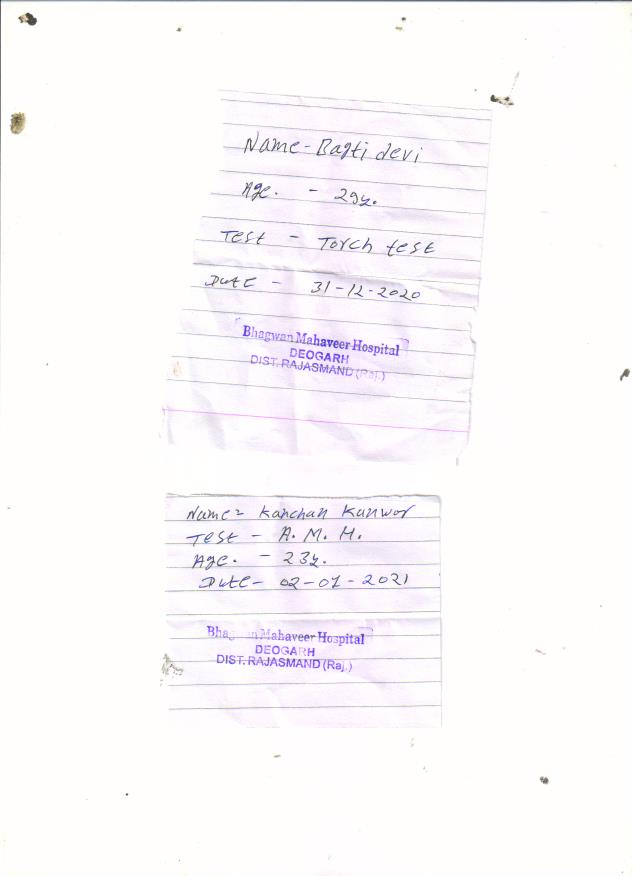 Name - Bagti devi
Age. - 29y.
Test - Torch test
Date - 31-12-2020
Bhagwan Mahaveer Hospital
DEOGARH
DIST. RAJASMAND (Raj.)
Name = Kanchan Kunwor
Test - A. M. H.
Age. - 23y.
Date - 02-01-2021
Bhagwan Mahaveer Hospital
DEOGARH
DIST. RAJASMAND (Raj.)